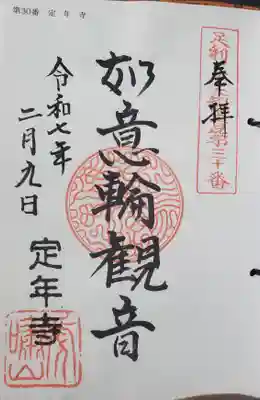 第30番 定年寺
奉拝
如意輪観音
令和七年
二月九日
定年寺